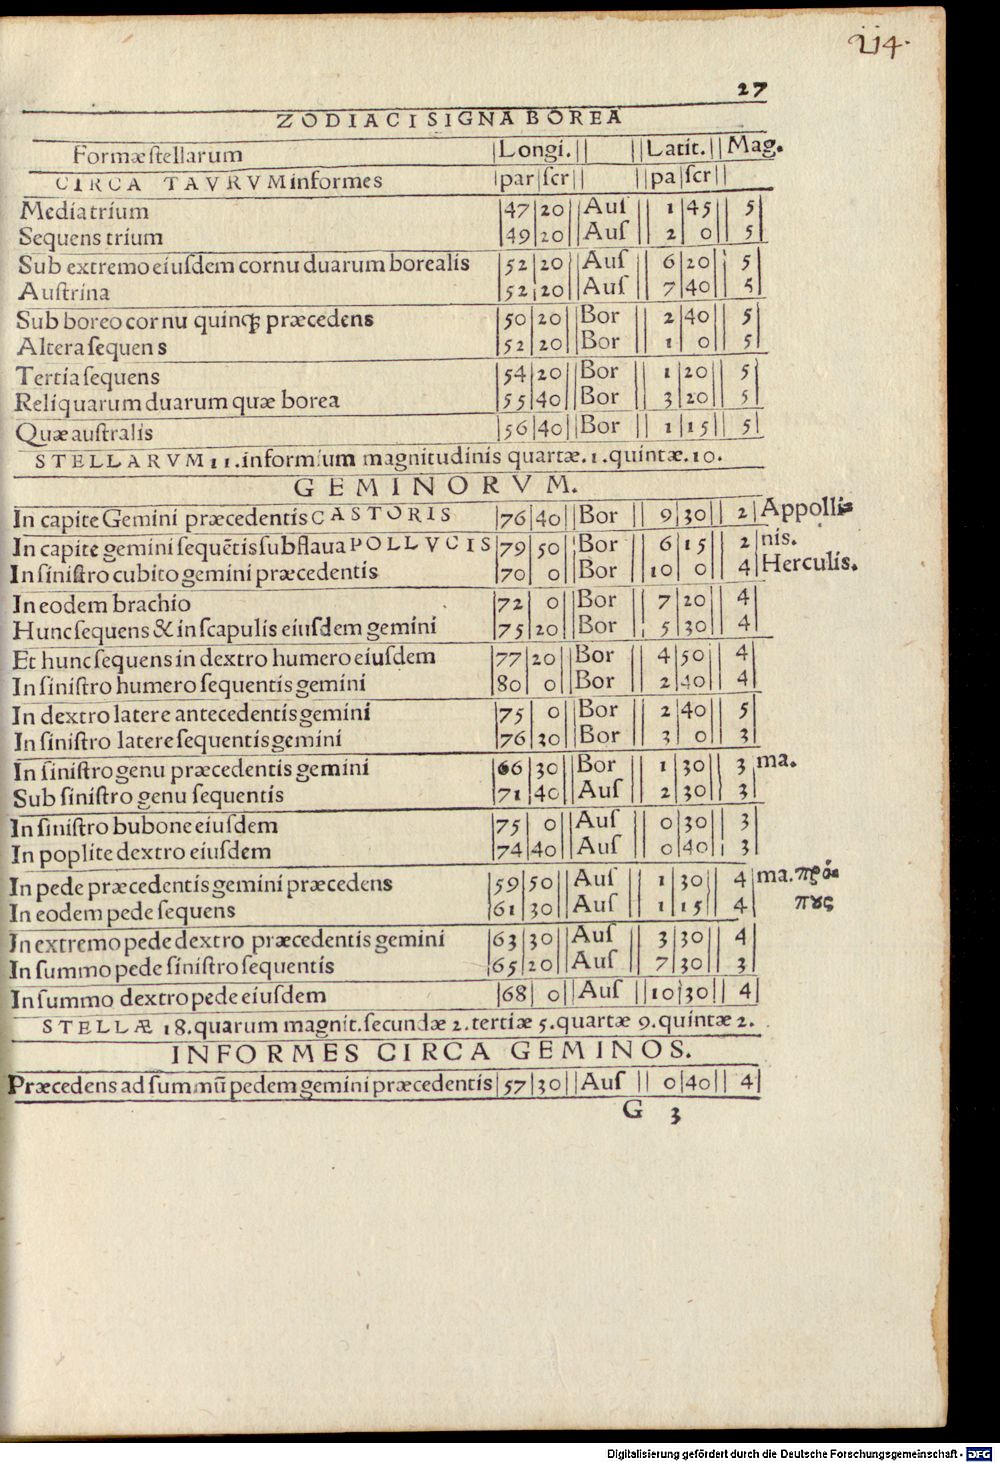 214.
27
ZODIACI SIGNA BOREA
Formæ stellarum | Longi. || || Latit. || Mag.
CIRCA TAVRVM informes | par | scr || || pa | scr ||
Media trium | 47 | 20 || Aus || 1 | 45 || 5 |
Sequens trium | 49 | 20 || Aus || 2 | 0 || 5 |
Sub extremo eiusdem cornu duarum borealis | 52 | 20 || Aus || 6 | 20 || 5 |
Austrina | 52 | 20 || Aus || 7 | 40 || 5 |
Sub boreo cornu quinqȝ præcedens | 50 | 20 || Bor || 2 | 40 || 5 |
Altera sequens | 52 | 20 || Bor || 1 | 0 || 5 |
Tertia sequens | 54 | 20 || Bor || 1 | 20 || 5 |
Reliquarum duarum quæ borea | 55 | 40 || Bor || 3 | 20 || 5 |
Quæ australis | 56 | 40 || Bor || 1 | 15 || 5 |
STELLARVM 11. informium magnitudinis quartæ. 1. quintæ. 10.
GEMINORVM.
In capite Gemini præcedentis CASTORIS | 76 | 40 || Bor || 9 | 30 || 2 | Appolli=
In capite gemini sequētis subflaua POLLVCIS | 79 | 50 || Bor || 6 | 15 || 2 | nis.
In sinistro cubito gemini præcedentis | 70 | 0 || Bor || 10 | 0 || 4 | Herculis.
In eodem brachio | 72 | 0 || Bor || 7 | 20 || 4 |
Hunc sequens & in scapulis eiusdem gemini | 75 | 20 || Bor || 5 | 30 || 4 |
Et hunc sequens in dextro humero eiusdem | 77 | 20 || Bor || 4 | 50 || 4 |
In sinistro humero sequentis gemini | 80 | 0 || Bor || 2 | 40 || 4 |
In dextro latere antecedentis gemini | 75 | 0 || Bor || 2 | 40 || 5 |
In sinistro latere sequentis gemini | 76 | 30 || Bor || 3 | 0 || 3 |
In sinistro genu præcedentis gemini | 66 | 30 || Bor || 1 | 30 || 3 | ma.
Sub sinistro genu sequentis | 71 | 40 || Aus || 2 | 30 || 3 |
In sinistro bubone eiusdem | 75 | 0 || Aus || 0 | 30 || 3 |
In poplite dextro eiusdem | 74 | 40 || Aus || 0 | 40 || 3 |
In pede præcedentis gemini præcedens | 59 | 50 || Aus || 1 | 30 || 4 | ma. πρό=
In eodem pede sequens | 61 | 30 || Aus || 1 | 15 || 4 | πȣς
In extremo pede dextro præcedentis gemini | 63 | 30 || Aus || 3 | 30 || 4 |
In summo pede sinistro sequentis | 65 | 20 || Aus || 7 | 30 || 3 |
In summo dextro pede eiusdem | 68 | 0 || Aus || 10 | 30 || 4 |
STELLÆ 18. quarum magnit. secundæ 2. tertiæ 5. quartæ 9. quintæ 2.
INFORMES CIRCA GEMINOS.
Præcedens ad summū pedem gemini præcedentis | 57 | 30 || Aus || 0 | 40 || 4 |
G 3
Digitalisierung gefördert durch die Deutsche Forschungsgemeinschaft - DFG